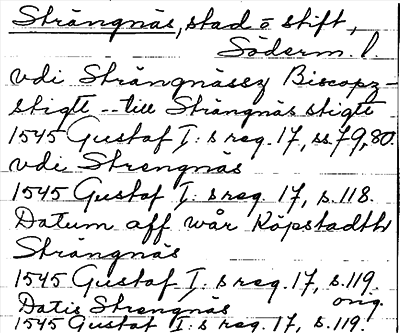 Strängnäs, stad o stift,
Söderm. l.
vdi Strängnässz Biscopz-
stigte -- till Strängnäs stigte
1545 Gustaf I: s reg. 17, ss 79, 80.
vdi Strengnäs
1545 Gustaf I: s reg. 17, s. 118.
Datum aff wår Köpstadth
Strängnäs
1545 Gustaf I: s reg. 17, s. 119.
orig.
Datis Strengnäs
1545 Gustaf I: s reg. 17, s. 119.